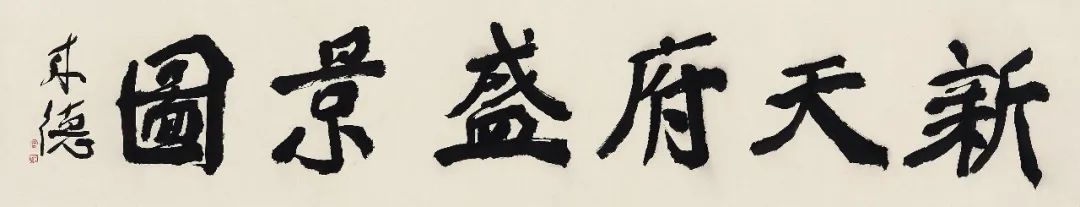 新天府盛景圖
来德